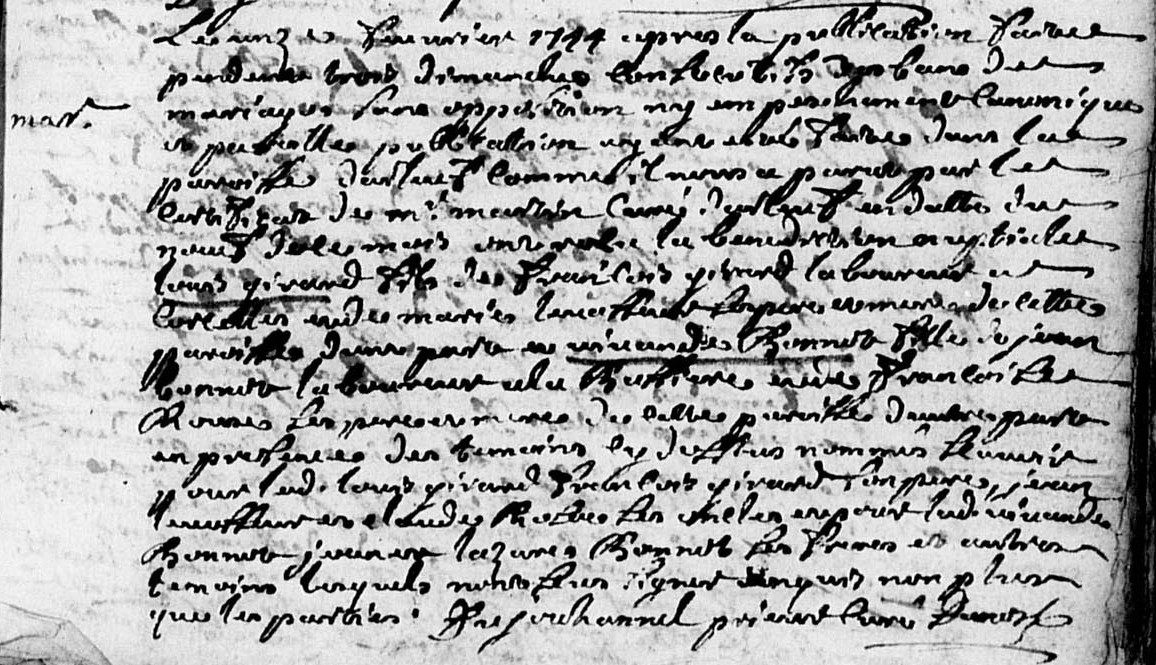 Le onze feuvrier 1744 apres la publication faitte
pendant trois dimanches consecutifs des bans de
mar.
mariages sans opposition ny empeschement canonique
et pareille publication ayant esté faitte dans la
paroisse comme il nous a parut par le
certificat de mr martin curé en datte du
neuf de ce mois ont reçu la benediction nuptialle
louis girard fils de francois girard laboureur
et de marie ses pere et mere de cette
paroisse dune part et Bonnot fille de jean
bonnot laboureur a la et de francoise
ses pere et mere de cette paroisse dautre part
en presence des temoins cy dessus nommes scavoir
pour led. louis girard francois girard son pere, jean
et claude ses oncles et pour lad.
Bonnot jean et lazare Bonnot ses freres et autres
temoins lesquels nont sceu signer enquis non plus
que les parties. prieur curé